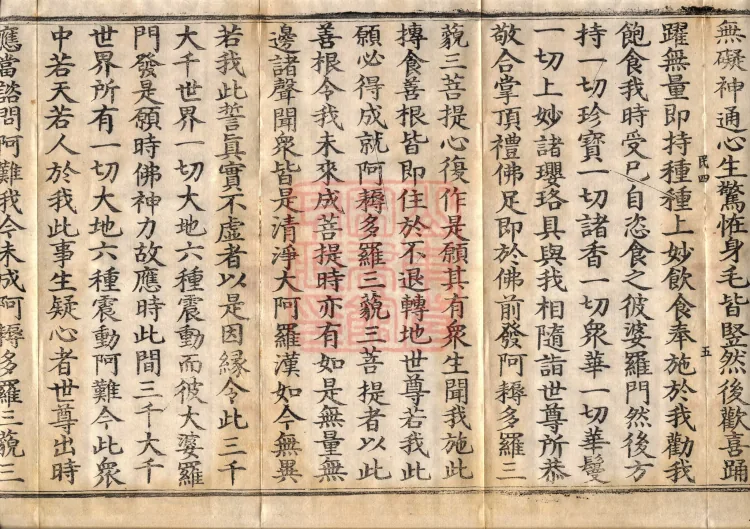 無礙神通心生驚怪身毛皆竪然後歡喜踊
民四
五
躍無量即持種種上妙飲食奉施於我勸我
飽食我時受已自恣食之彼婆羅門然後方
持一切珍寶一切諸香一切衆華一切華鬘
一切上妙諸瓔珞具與我相隨詣世尊所恭
敬合掌頂禮佛足即於佛前發阿耨多羅三
藐三菩提心復作是願其有衆生聞我施此
摶食善根皆即住於不退轉地世尊若我此
願必得成就阿耨多羅三藐三菩提者以此
善根令我未來成菩提時亦有如是無量無
邊諸聲聞衆皆是清淨大阿羅漢如今無異
若我此誓真實不虛者以是因緣令此三千
大千世界一切大地六種震動而彼大婆羅
門發是願時佛神力故應時此間三千大千
世界所有一切大地六種震動阿難今此衆
中若天若人於我此事生疑心者世尊出時
應當諮問阿難我今未成阿耨多羅三藐三